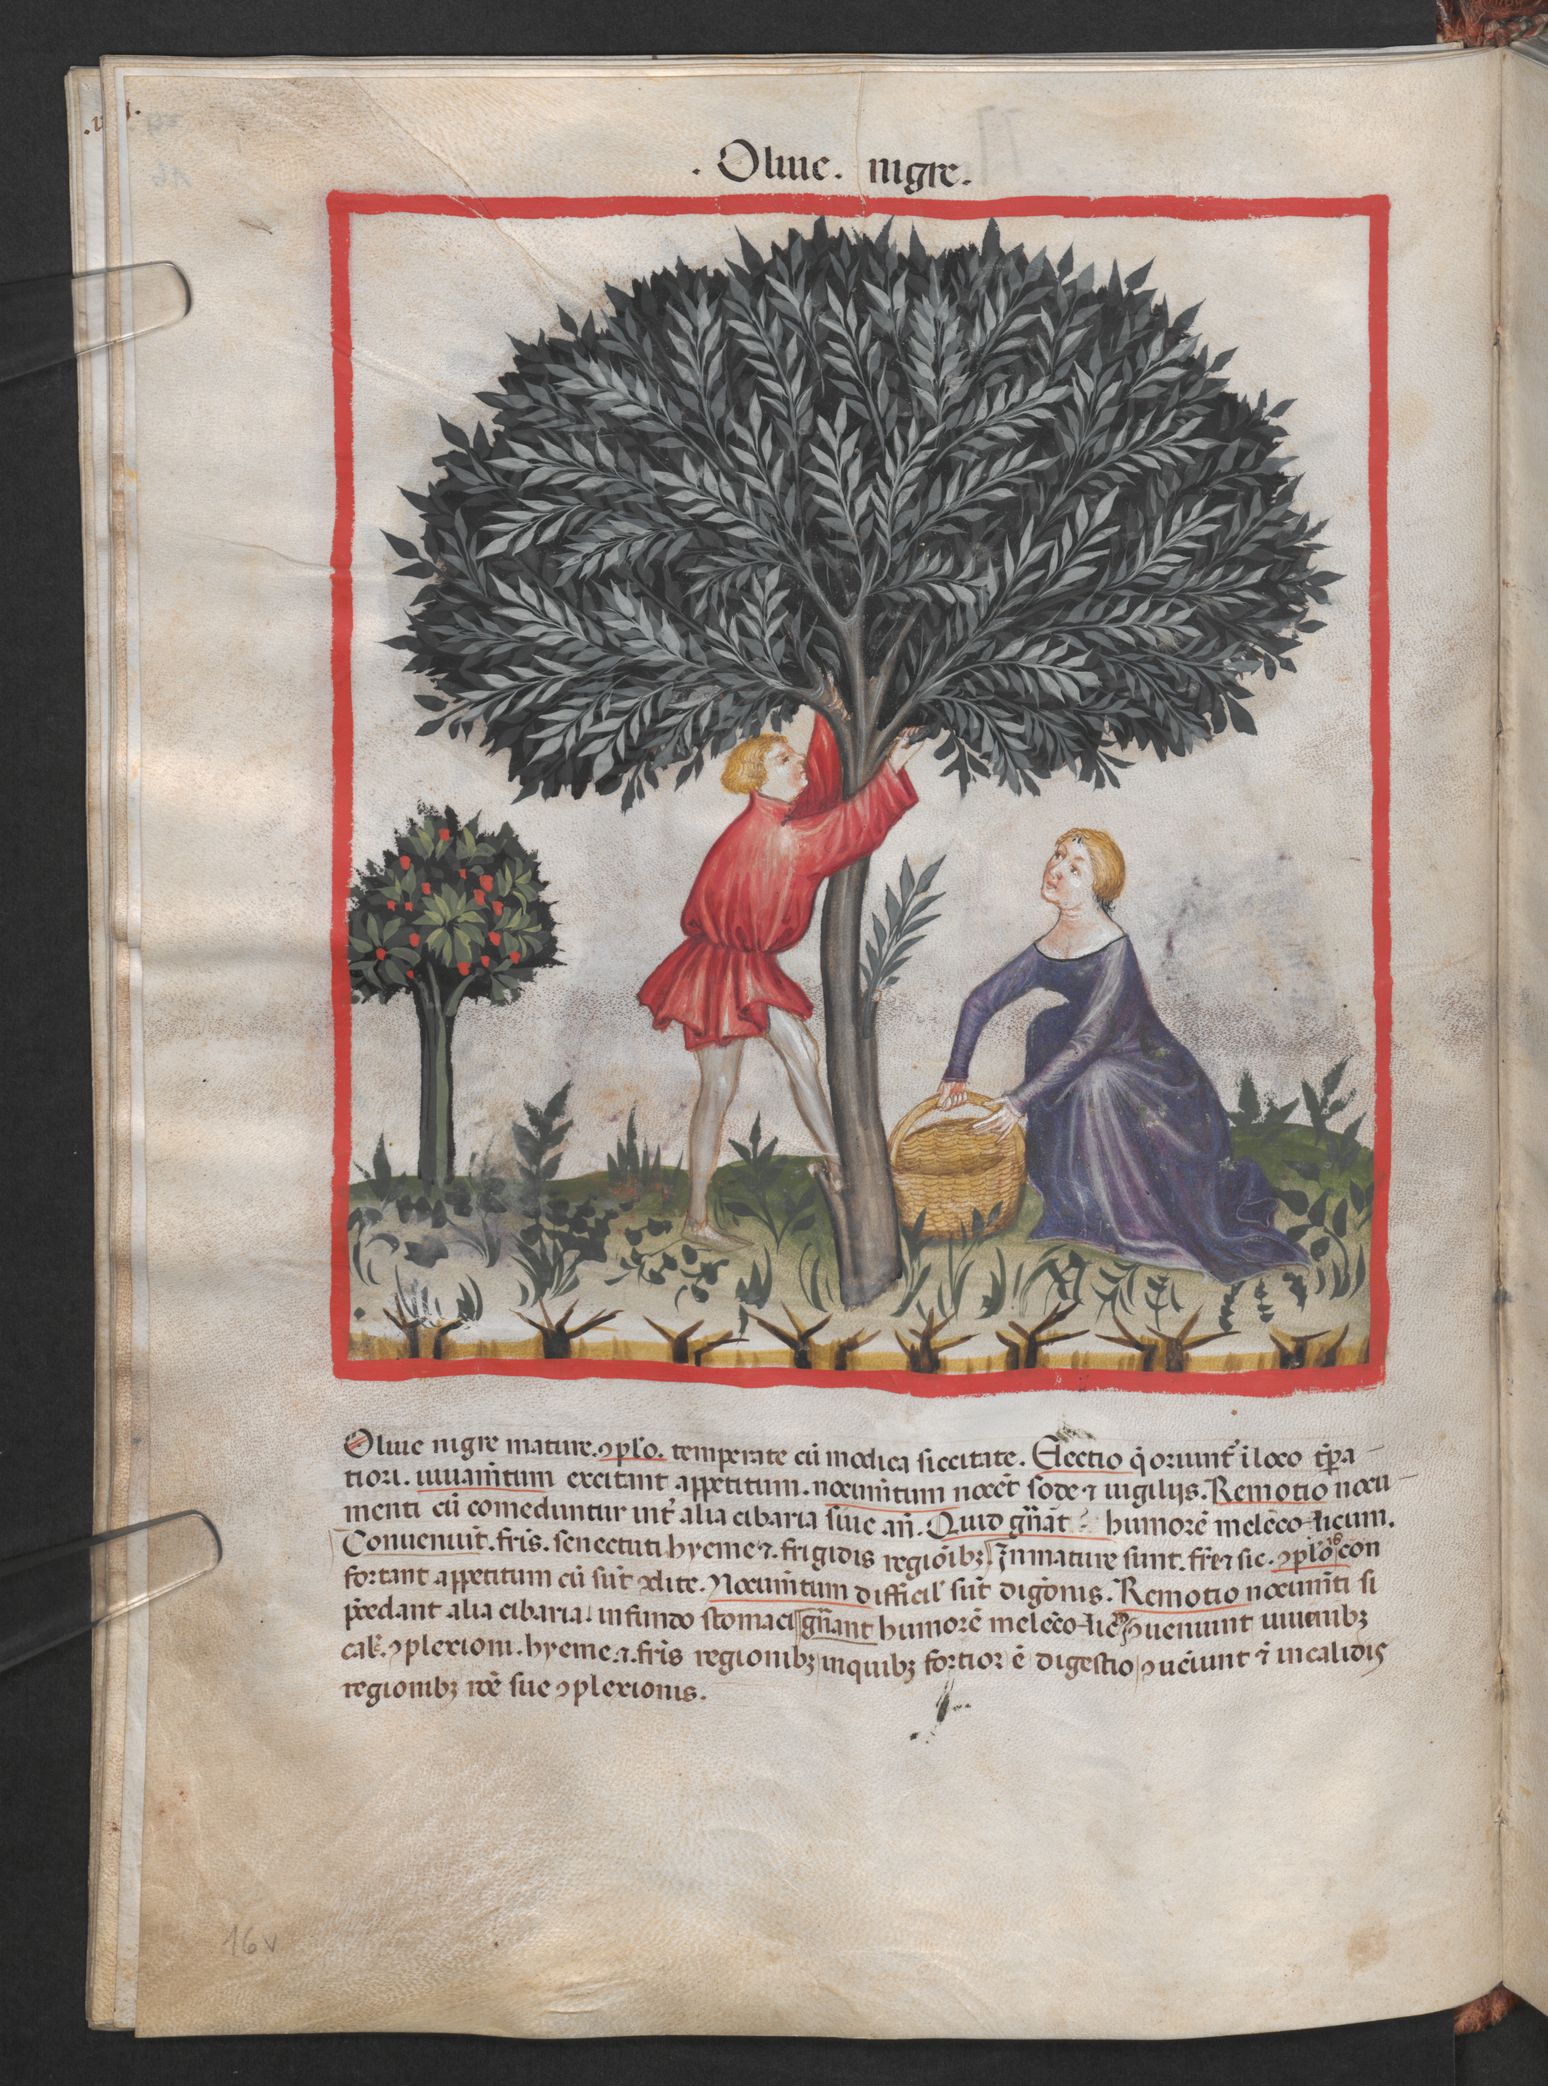 . Oliue . nigre .
Oliue nigre mature . ꝯplo̅ . temperate cu̅ modica siccitate . Electio q̇ oriunt᷑ i̅ loco t̅p̅a
tiori . iuuam̅tum excitant appetitum . nocum̅tum noce̅t sode ⁊ uigilijs . Remotio nocu
menti cu̅ comeduntur int᷑ alia cibaria siue an̅ . Quid gn̅a̅t humore̅ mele̅colicum .
Conueniu̅t . fri̅s . senectuti hyeme ⁊ . frigidis regio̅ibꝫ Inmature sunt . fr̅e ⁊ sic . ꝯplo̅ıs con
fortant appetitum cu̅ su̅t ꝯdite . Nocum̅tum difficil̅ su̅t digo̅nis . Remotio nocum̅ti si
p̅cedant alia cibaria in fundo stomaci gn̅ant humore̅ mele̅colic̅ ꝯueniunt iuuenibꝫ
cal̅ . ꝯplexioni . hyeme . ⁊ . fri̅s regionibꝫ in quibꝫ fortior e̅ digestio ꝯue̅iunt ⁊ in calidis
regionibꝫ ro̅e̅ sue ꝯplexionis .
16v